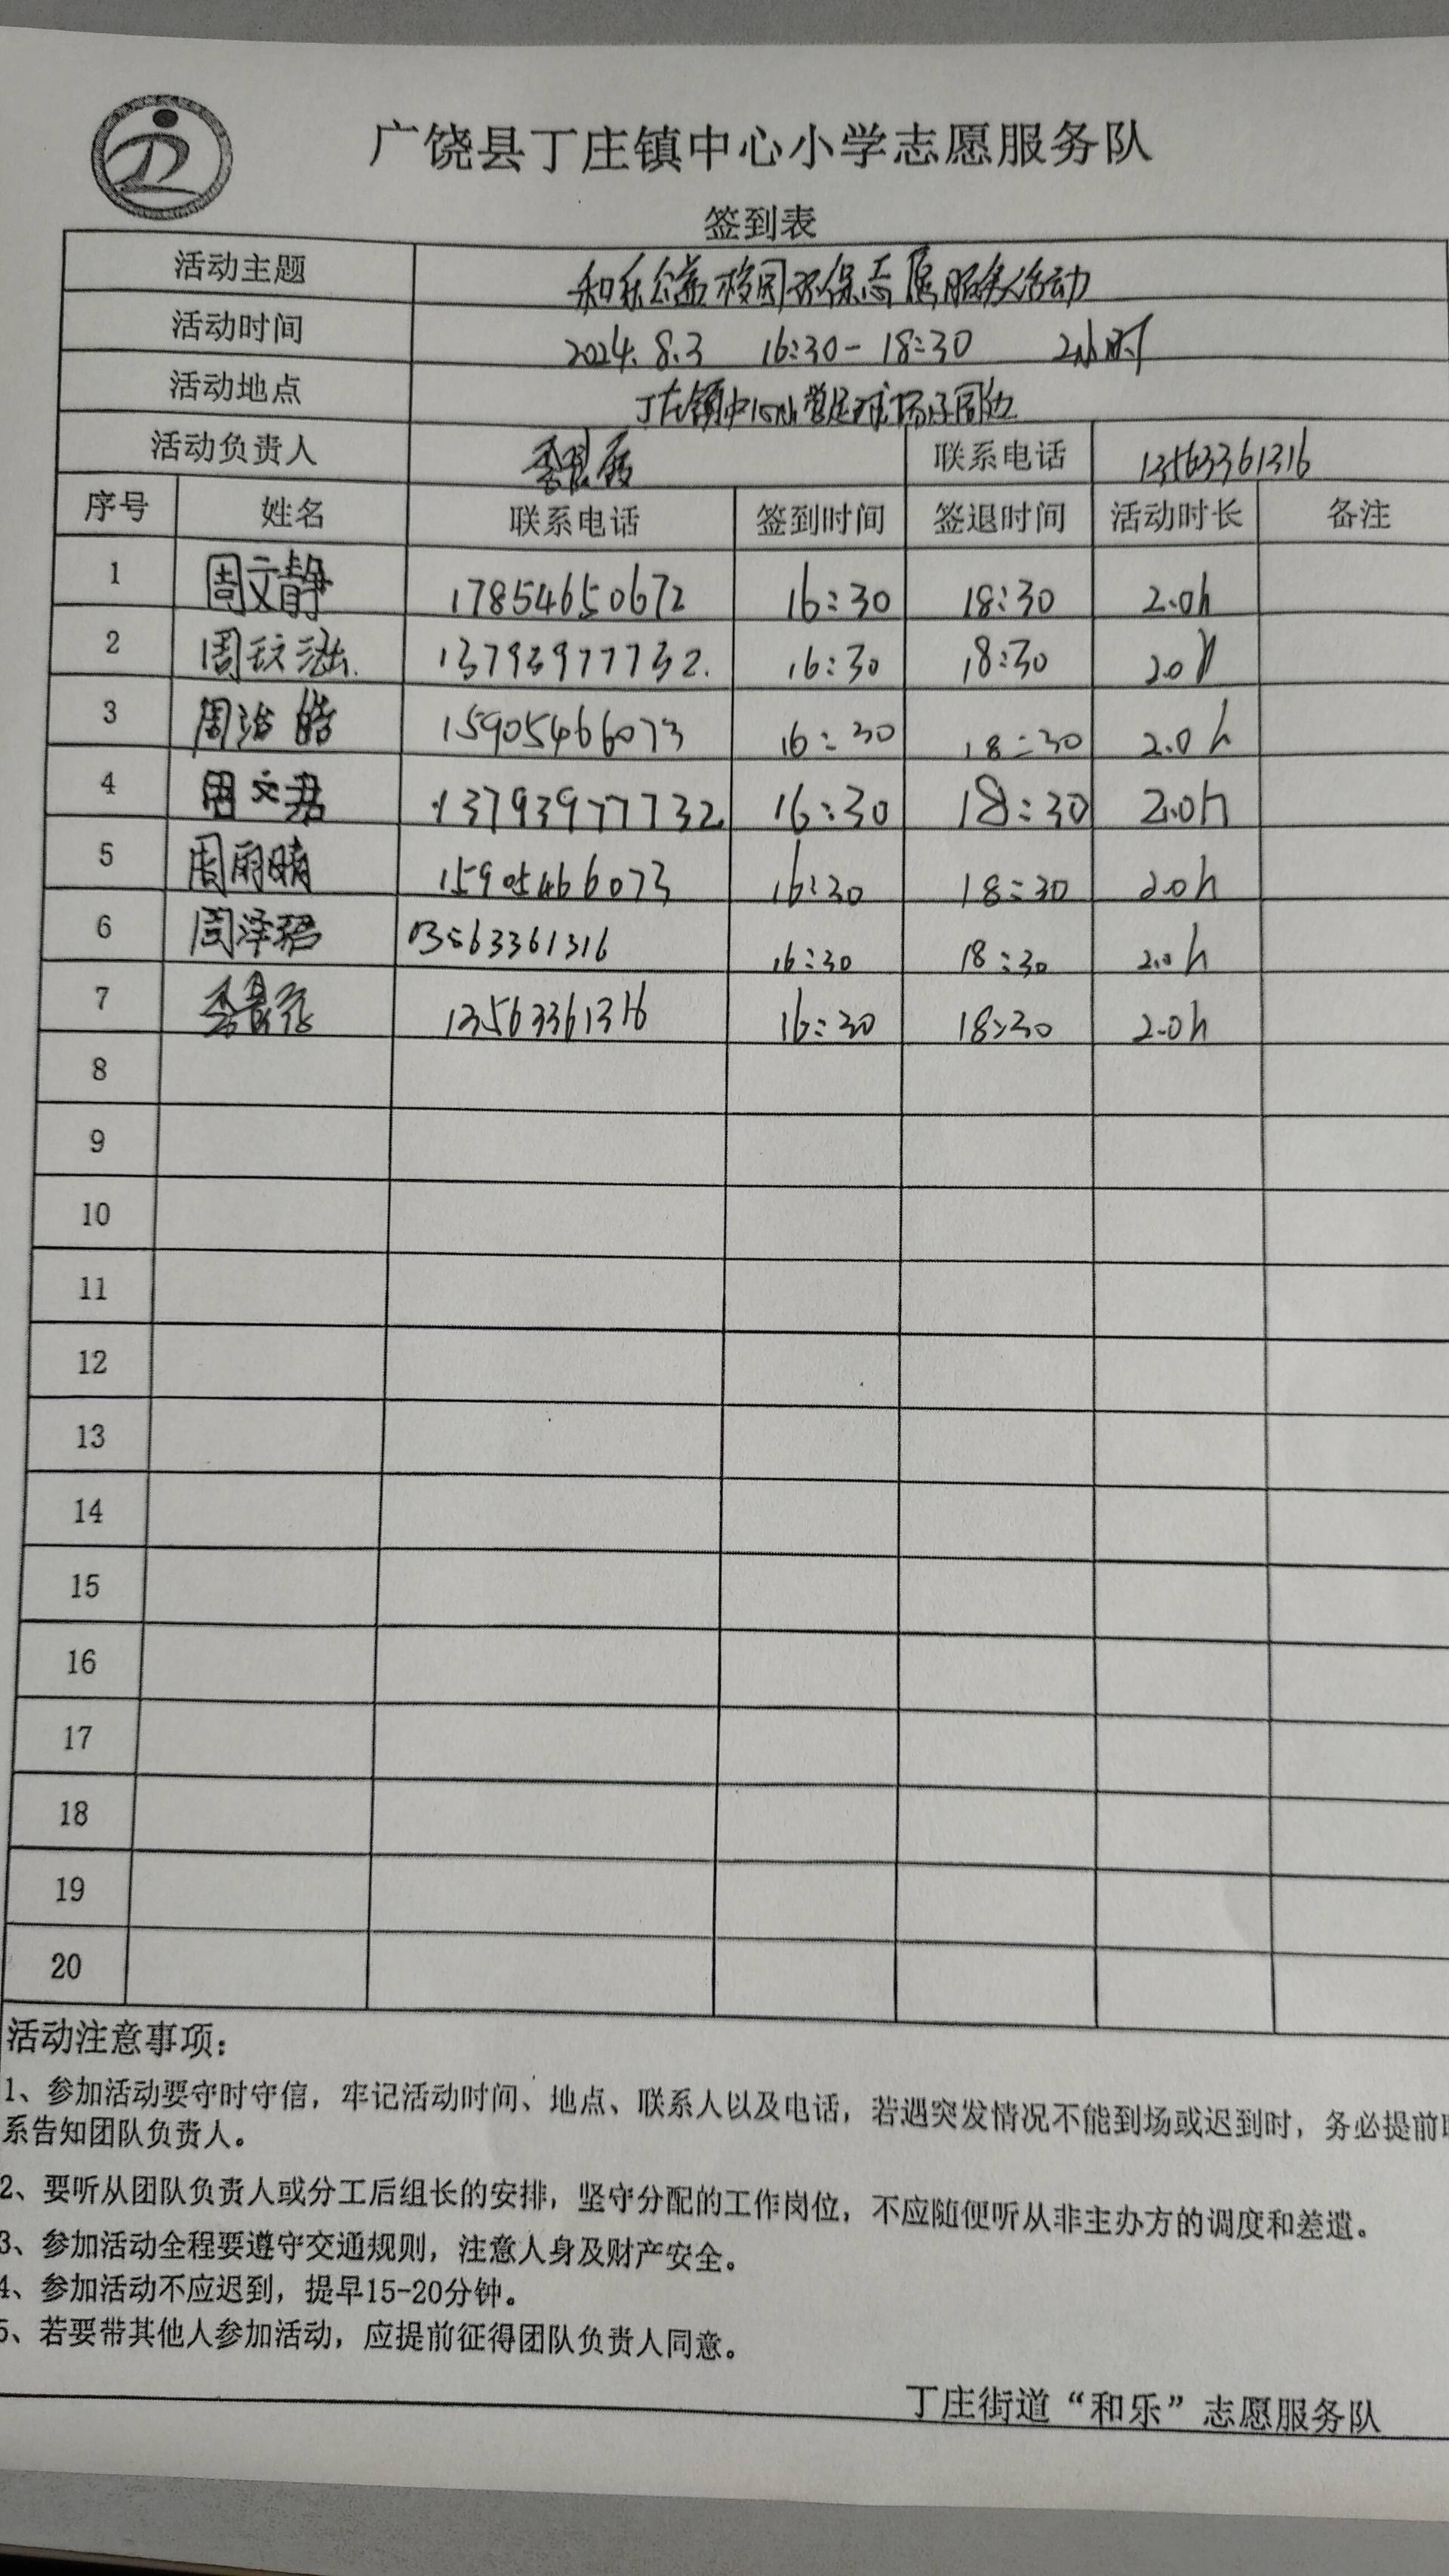 广饶县丁庄镇中心小学志愿服务队
签到表
活动主题 和乐公益校园环保志愿服务活动
活动时间 2024.8.3 16:30-18:30 2小时
活动地点 丁庄镇中心小学足球场及周边
活动负责人 李 联系电话 13563361316
序号 姓名 联系电话 签到时间 签退时间 活动时长 备注
1 周文静 17854650672 16:30 18:30 2.0h
2 周玟涵 13793977732. 16:30 18:30 2.0h
3 周浩皓 15905466073 16:30 18:30 2.0h
4 周文君 13793977732 16:30 18:30 2.0h
5 周雨晴 15905466073 16:30 18:30 2.0h
6 周泽 13563361316 16:30 18:30 2.0h
7 李 13563361316 16:30 18:30 2.0h
8
9
10
11
12
13
14
15
16
17
18
19
20
活动注意事项：
1、参加活动要守时守信，牢记活动时间、地点、联系人以及电话，若遇突发情况不能到场或迟到时，务必提前
系告知团队负责人。
2、要听从团队负责人或分工后组长的安排，坚守分配的工作岗位，不应随便听从非主办方的调度和差遣。
3、参加活动全程要遵守交通规则，注意人身及财产安全。
4、参加活动不应迟到，提早15-20分钟。
5、若要带其他人参加活动，应提前征得团队负责人同意。
丁庄街道“和乐”志愿服务队